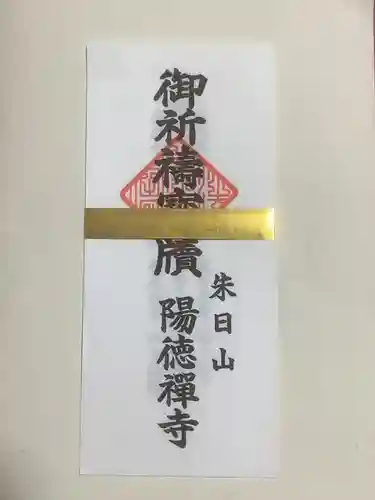 御祈禱寳牘
朱日山
陽徳禪寺